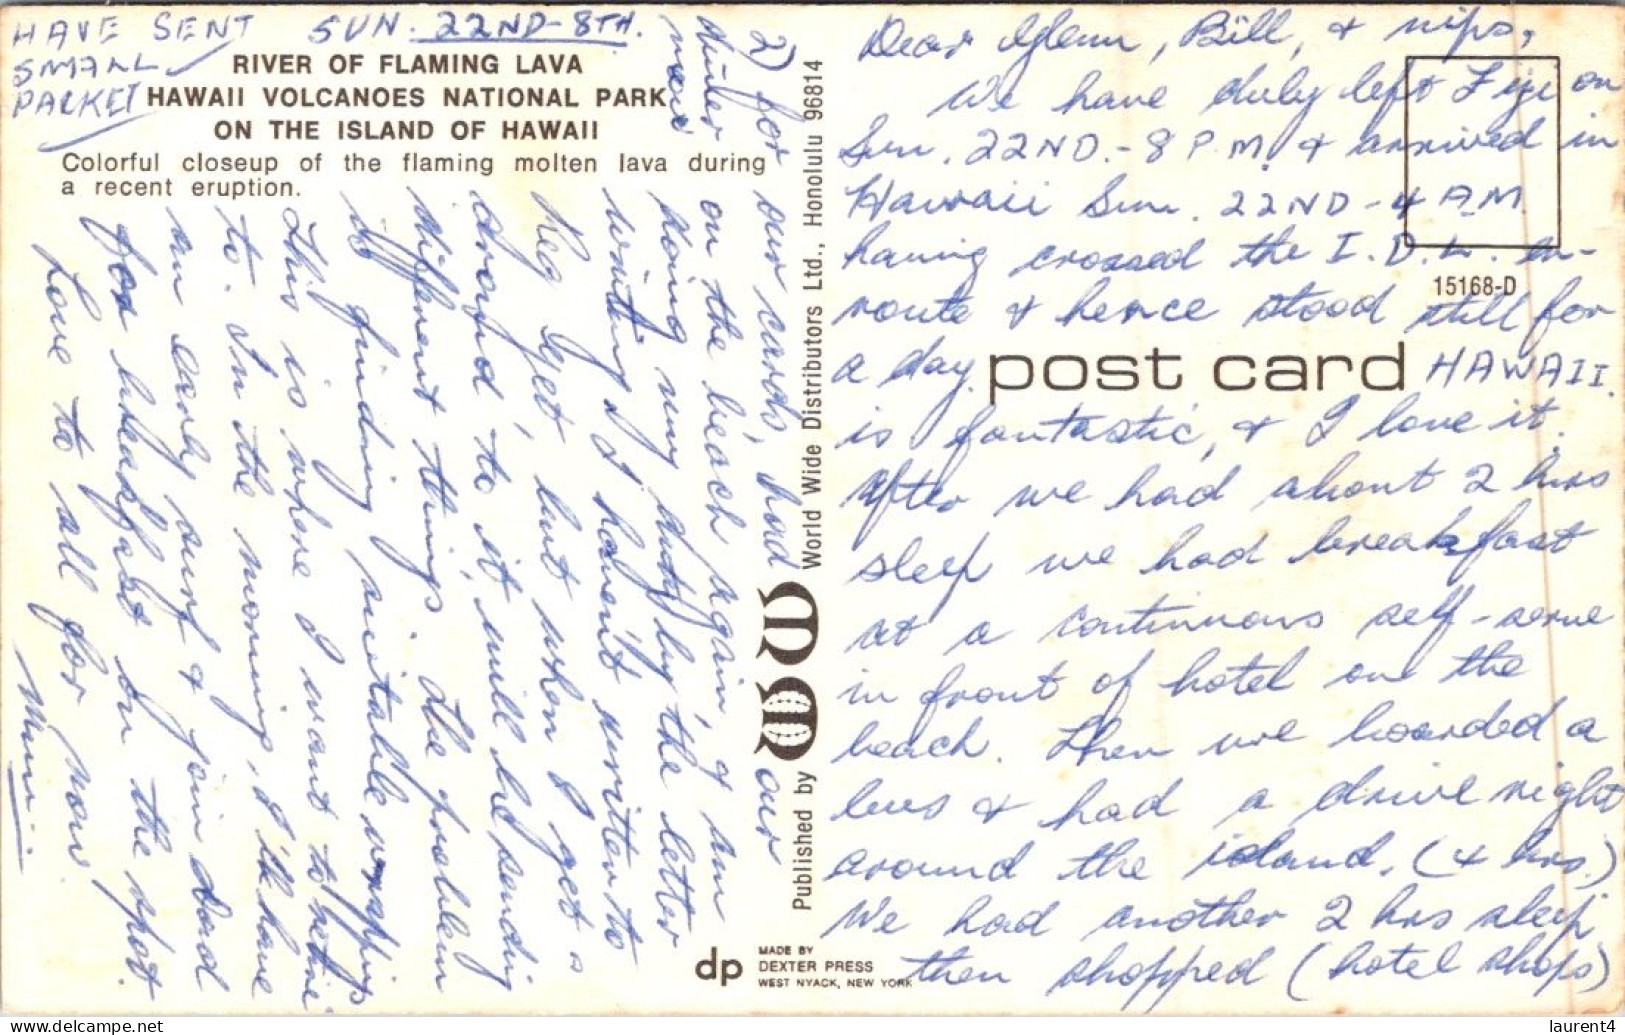 HAVE SENT SUN. 22ND-8TH.
SMALL
PACKET
RIVER OF FLAMING LAVA
HAWAII VOLCANOES NATIONAL PARK
ON THE ISLAND OF HAWAII
Colorful closeup of the flaming molten lava during
a recent eruption.
Dear Glenn, Bill, & nips,
We have duly left Fiji on
Sun. 22ND.-8 P.M. & arrived in
Hawaii Sun. 22ND-4 A.M
having crossed the I.D.L. en-
route & hence stood still for
a day. HAWAII.
is fantastic, & I love it.
After we had about 2 hrs
sleep we had breakfast
at a continuous self-serve
in front of hotel on the
beach. Then we boarded a
bus & had a drive right
around the island. (4 hrs.)
We had another 2 hrs sleep
then shopped (hotel shops)
2) for our cards, had our
dinner on the beach again, & am
now doing my duty by the letter
writing. I haven't written to
Reg yet, but when I get
around to it, will be sending
different things. The problem
is finding suitable wrapping
This is where I want to retire
to. In the morning, I'll have
an early surf & join dad
for breakfast on the spot.
Love to all for now
Mum
15168-D
post card
World Wide Distributors Ltd., Honolulu 96814
Published by
dp
MADE BY
DEXTER PRESS
WEST NYACK, NEW YORK
laurent4